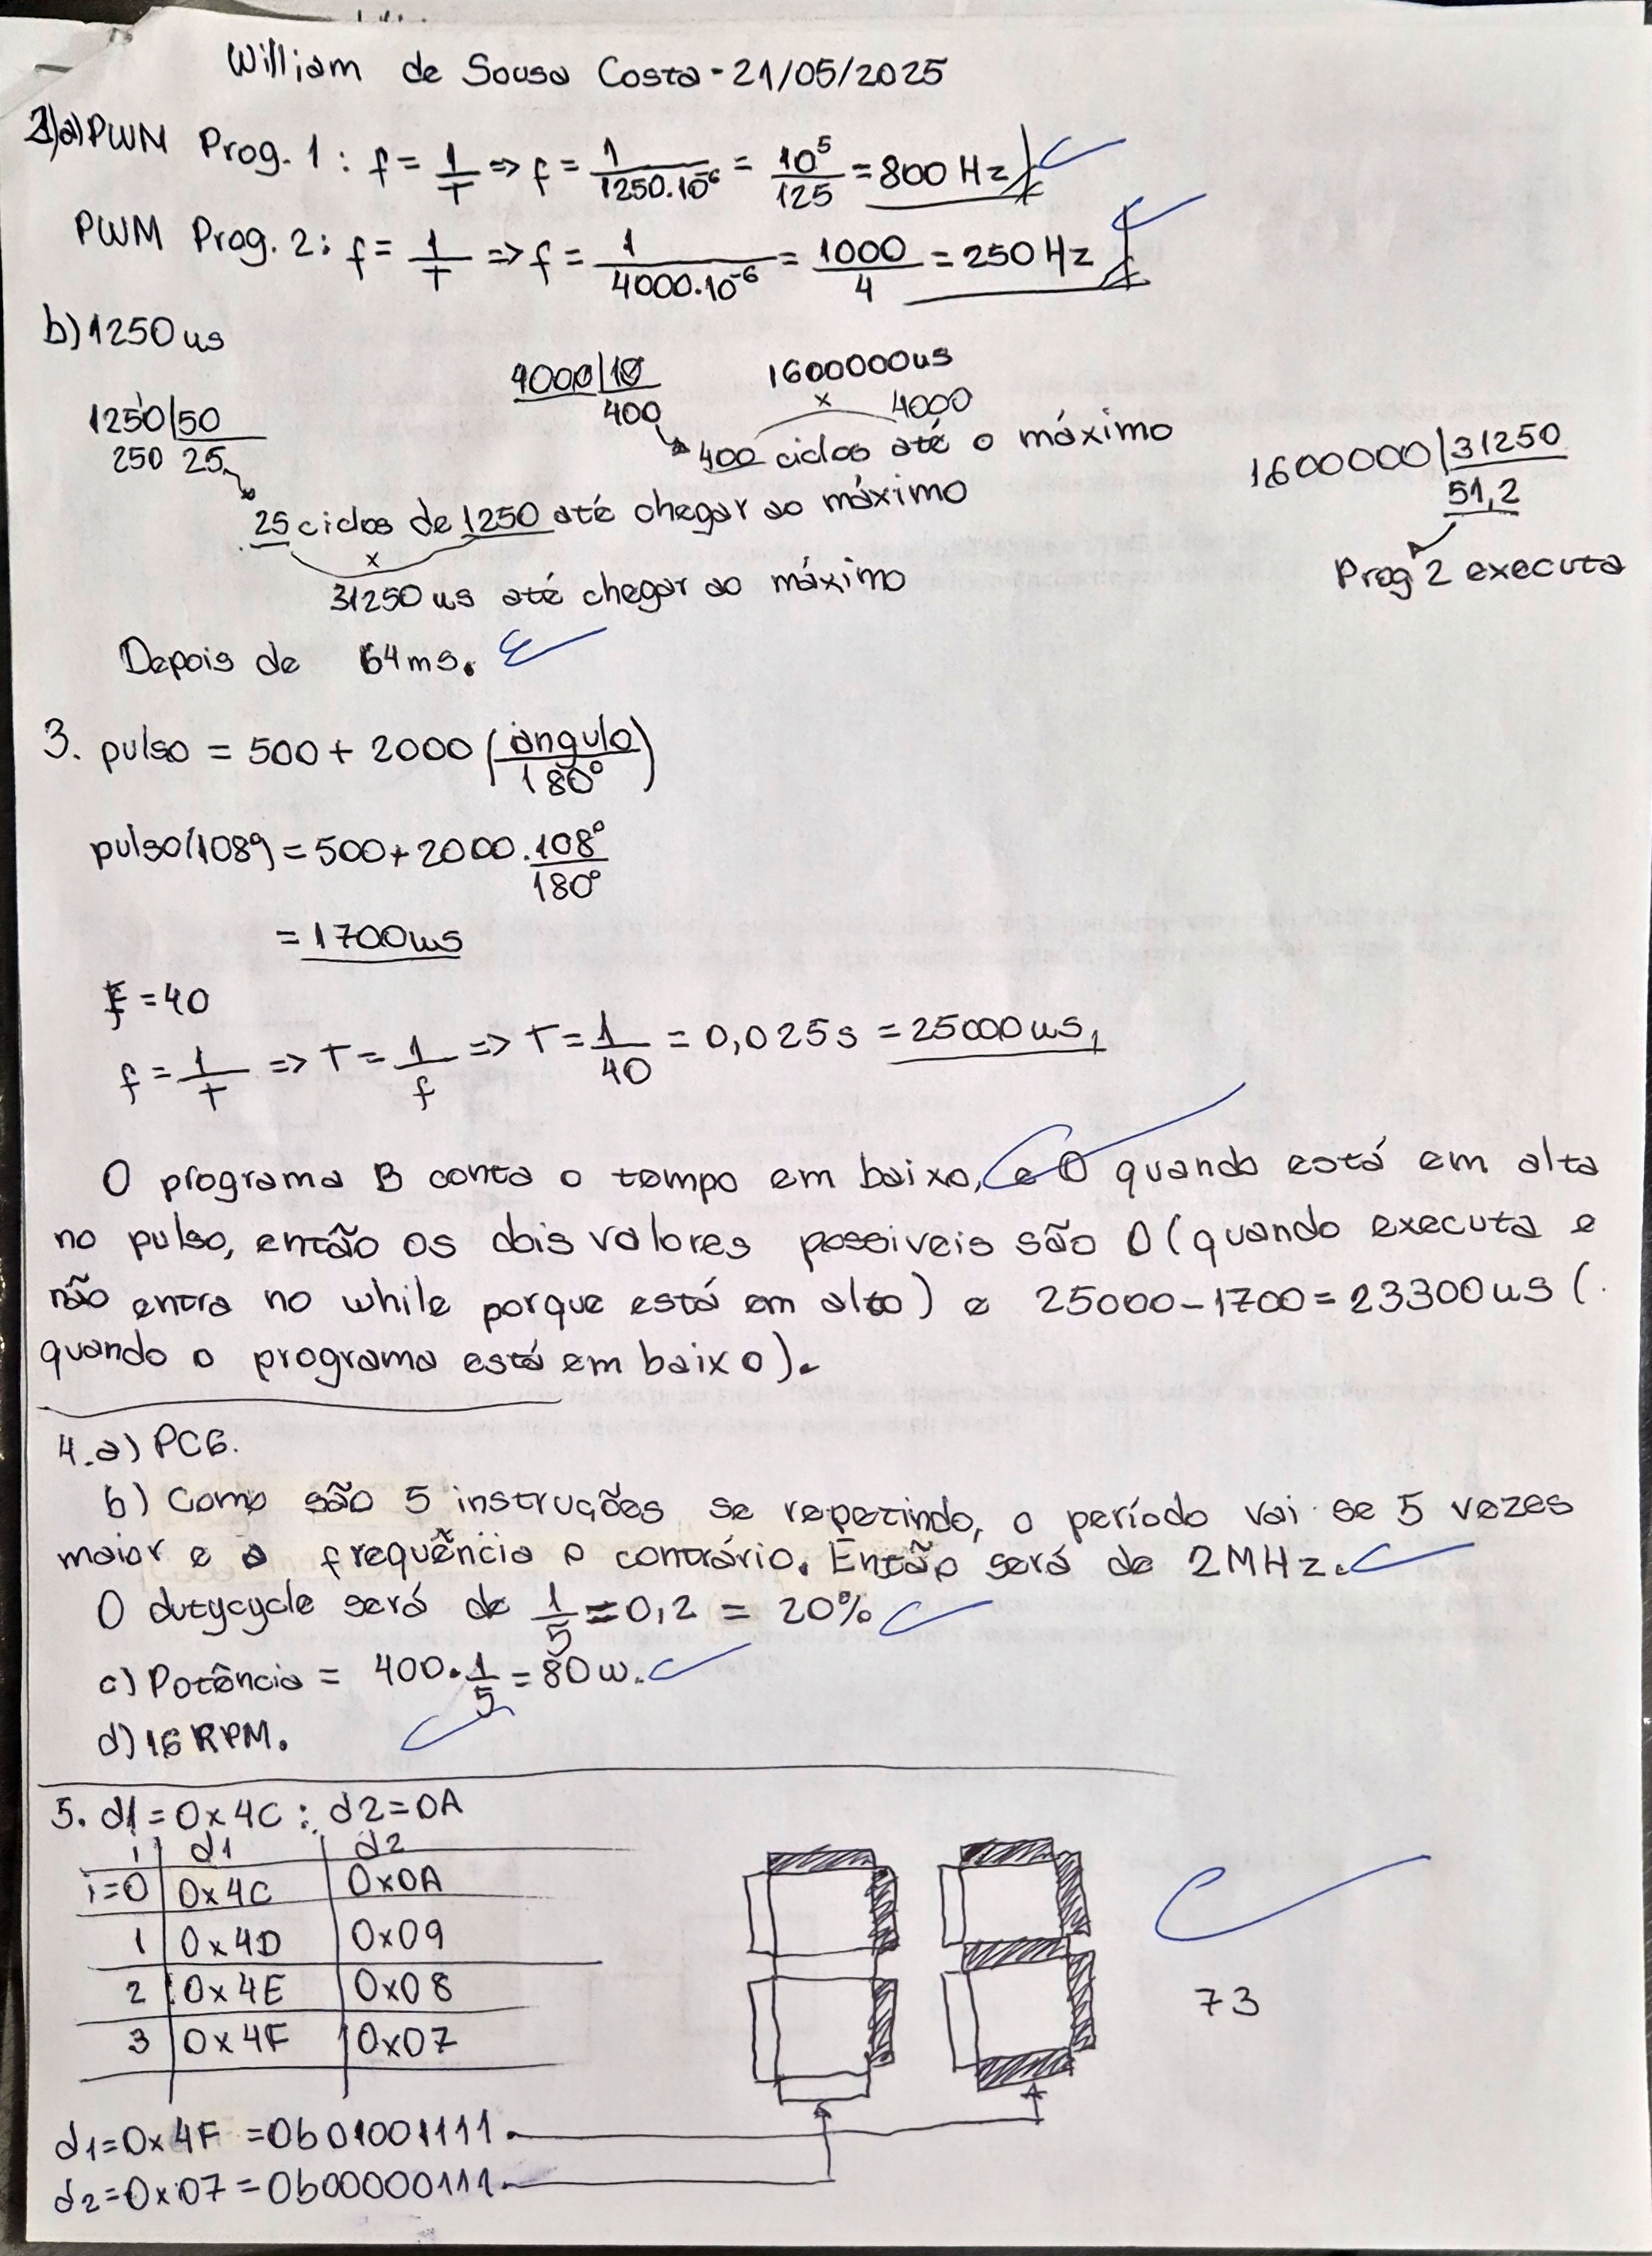 William de Sousa Costa - 21/05/2025
2)a) PWM Prog. 1: f = 1/T => f = 1/1250.10⁻⁶ = 10⁵/125 = 800 Hz
PWM Prog. 2: f = 1/T => f = 1/4000.10⁻⁶ = 1000/4 = 250 Hz
b) 1250us
1250|50
250 25
25 ciclos de 1250 até chegar ao máximo
x
31250us até chegar ao máximo
4000|10
400
1600000us
x 4000
400 ciclos até o máximo
1600000|31250
51,2
Prog 2 executa
Depois de 64ms.
3. pulso = 500 + 2000 (ângulo/180°)
pulso(108°) = 500 + 2000 . 108°/180°
= 1700us
f = 40
f = 1/T => T = 1/f => T = 1/40 = 0,025s = 25000us
O programa B conta o tempo em baixo, e 0 quando está em alta
no pulso, então os dois valores possiveis são 0 (quando executa e
não entra no while porque está em alto) e 25000-1700=23300us (
quando o programa está em baixo).
4.a) PC6.
b) Como são 5 instruções se repetindo, o período vai se 5 vezes
maior e a frequência o contrário. Então será de 2MHz.
O dutycycle será de 1/5 = 0,2 = 20%
c) Potência = 400 . 1/5 = 80w.
d) 16 RPM.
5. d1=0x4C; d2=0A
i d1 d2
i=0 0x4C 0x0A
1 0x4D 0x09
2 0x4E 0x08
3 0x4F 0x07
73
d1=0x4F =0b01001111.
d2=0x07=0b00000111.